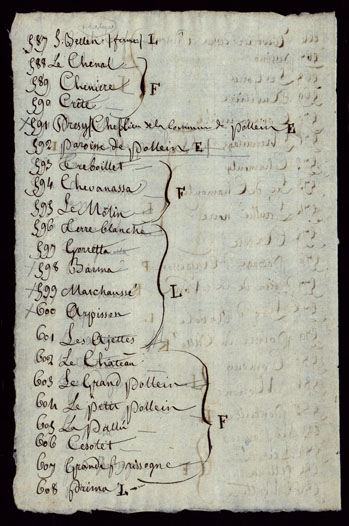 587 S. Bellin [faine] L
588 Le Chenal
589 Cheniere
590 Crête F
+591 Presy Chef lieu de la Commun de Pollein E
592 Paroîne de Pollein E
593 Creboillet
594 Chevanassa
595 Le Molin F
596 Terre blanche
597 Gorretta
+598 Barma
+599 Marchaussé L
+600 Arpisson
601 Les Azettes
602 Le Château
603 Le Grand Pollein
604 Le Petit Pollein F
605 La Palluz
606 Cesolet
607 Grande Brissogne
608 Prima L